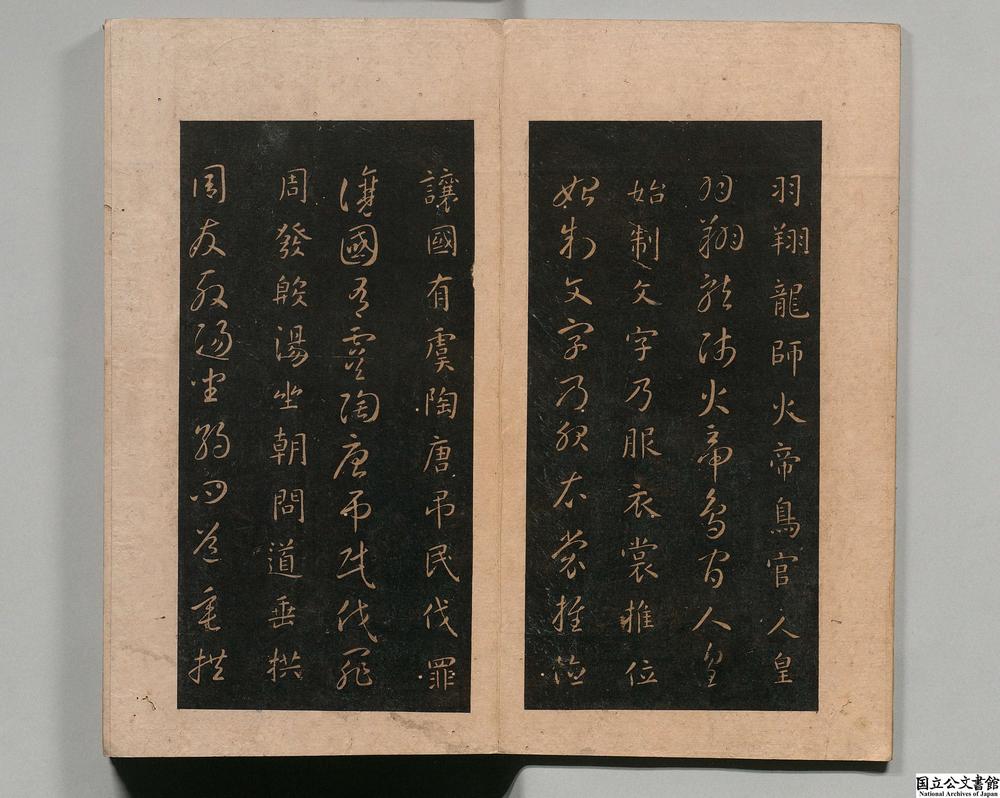 羽翔龍師火帝鳥官人皇
羽翔龍師火帝鳥官人皇
始制文字乃服衣裳推位
始制文字乃服衣裳推位
讓國有虞陶唐弔民伐罪
讓國有虞陶唐弔民伐罪
周發殷湯坐朝問道垂拱
周發殷湯坐朝問道垂拱
国立公文書館
National Archives of Japan